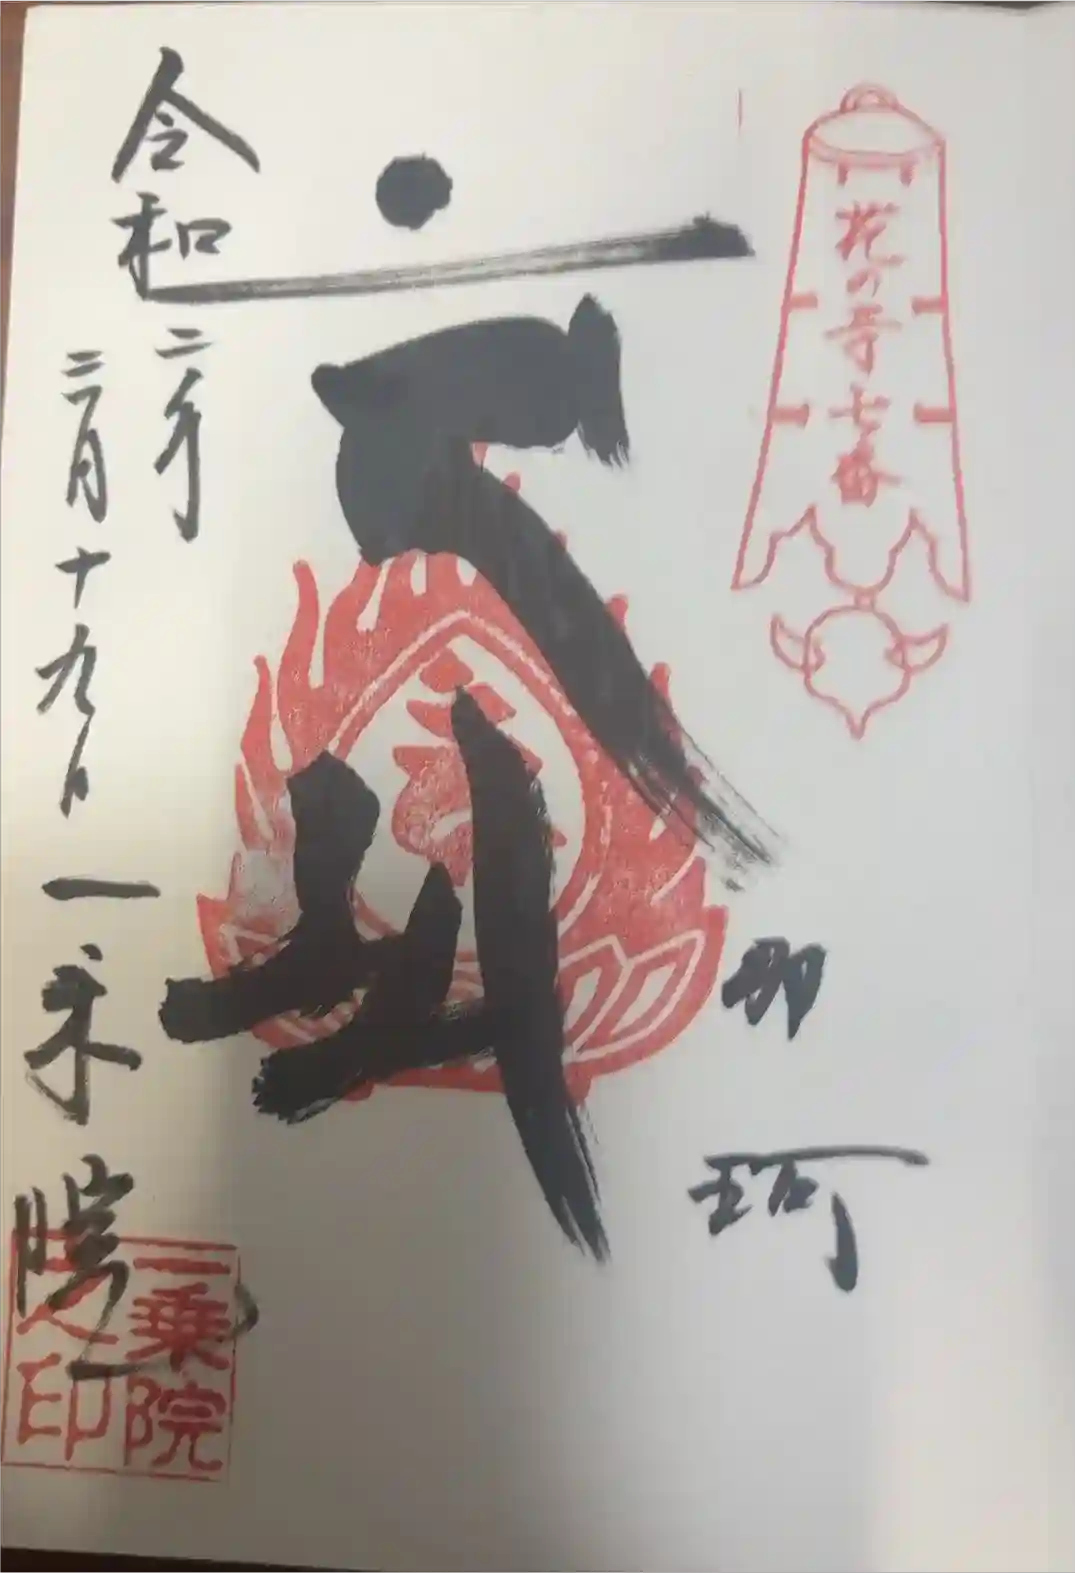 花の寺七番
那
珂
令和二年
三月十九日
一乗院
一乗院
之印